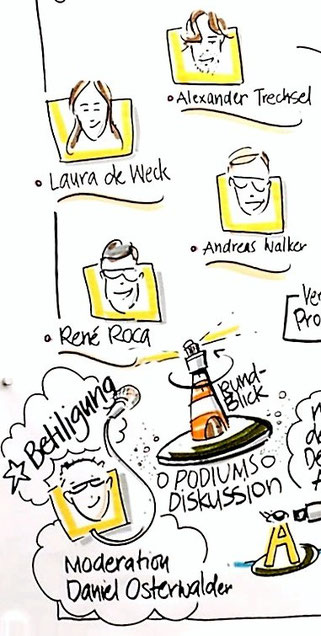 Alexander Trechsel
Laura de Weck
Andreas Walker
René Roca
Ver
Pro
Rund-
Blick
Betiligung
PODIUMS
DISKUSSION
A
Moderation
Daniel Osterwalder